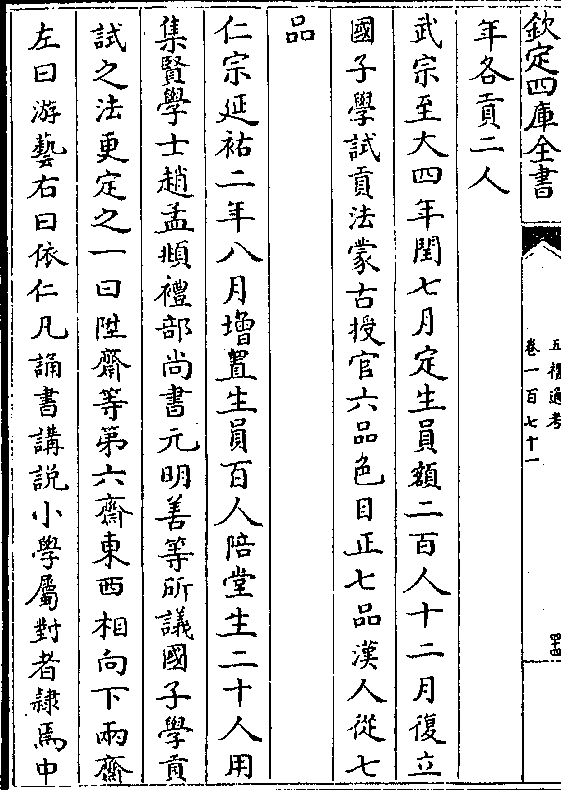 欽定四庫全書
五禮通考
卷一百七十一
四十四
年各貢二人
武宗至大四年閏七月定生員額二百人十二月復立
國子學試貢法蒙古授官六品色目正七品漢人從七
品
仁宗延祐二年八月增置生員百人陪堂生二十人用
集賢學士趙孟頫禮部尚書元明善等所議國子學貢
試之法更定之一曰陞齋等第六齋東西相向下兩齋
左曰游藝右曰依仁凡誦書講説小學屬對者隷焉中